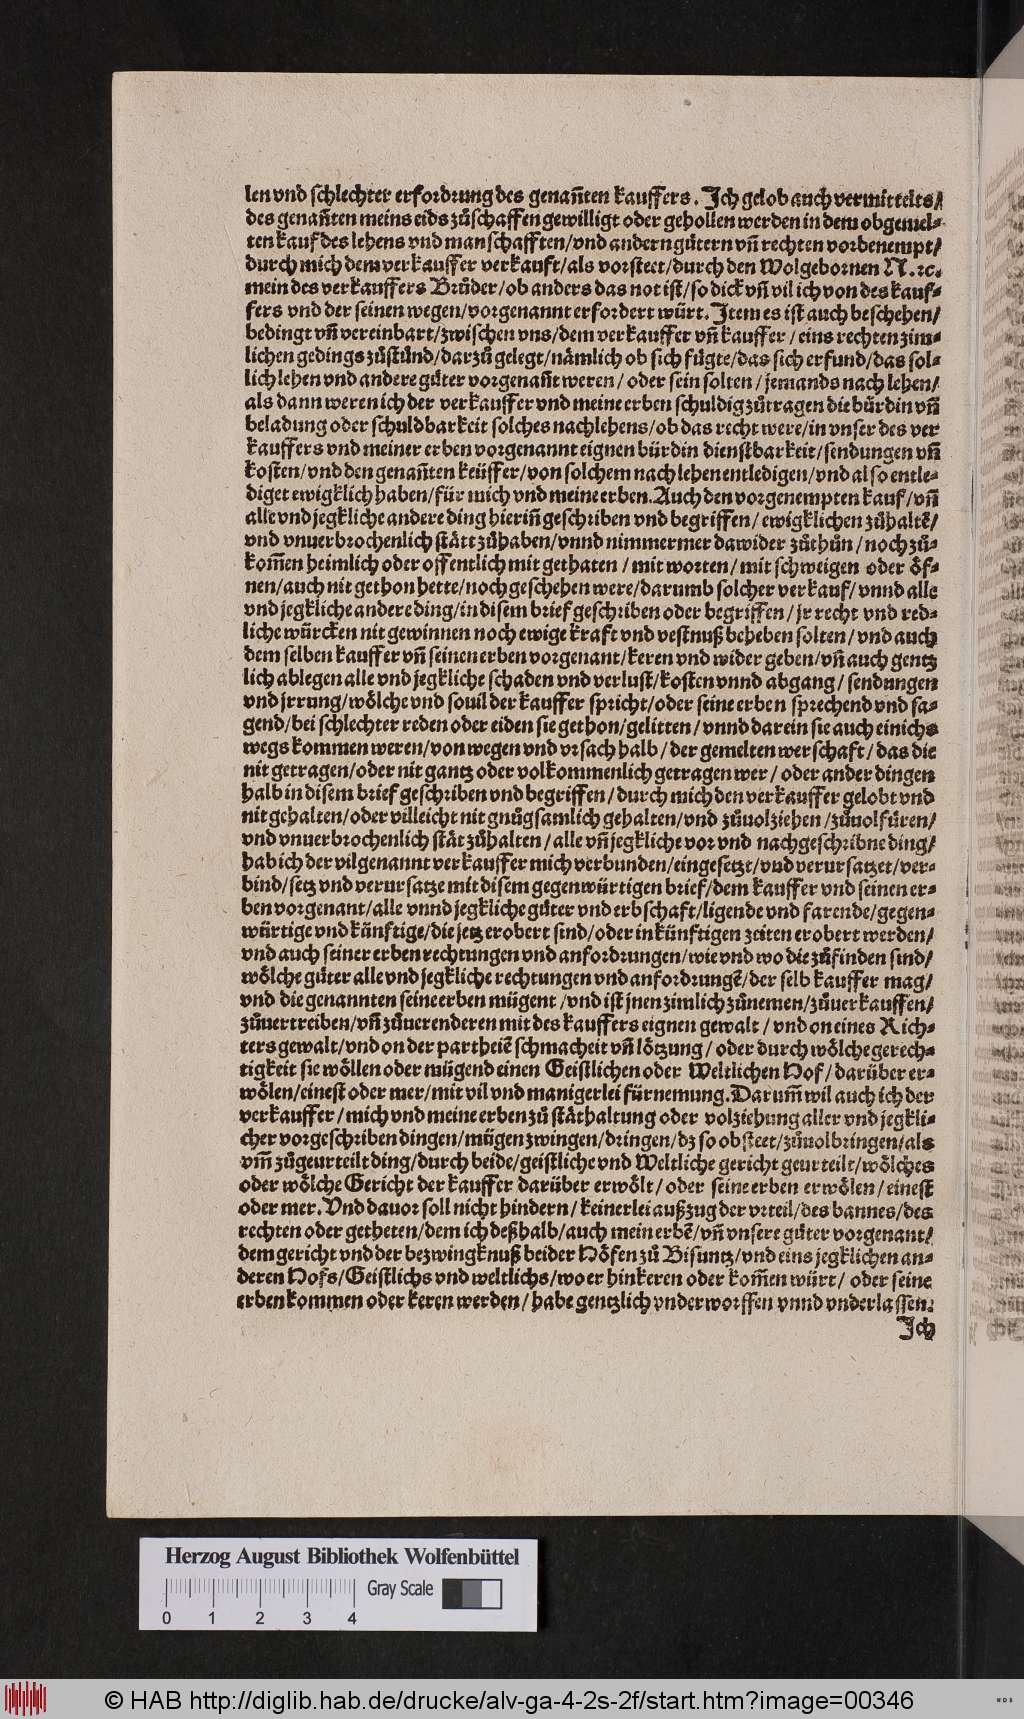 len vnd schlechter erfordrung des genañten kauffers. Jch gelob auch vermittelts/
des genañten meins eids zůschaffen gewilligt oder gehollen werden in dem obgemel-
ten kauf des lehens vnd manschafften/vnd andern gütern vñ rechten vorbenempt/
durch mich dem verkauffer verkauft/als vorsteet/durch den Wolgebornen N.ꝛc.
mein des verkauffers Brůder/ob anders das not ist/so dick vñ vil ich von des kauf-
fers vnd der seinen wegen/vorgenannt erfordert würt. Jtem es ist auch beschehen/
bedingt vñ vereinbart/zwischen vns/dem verkauffer vñ kauffer/eins rechten zim-
lichen gedings zůstünd/darzů gelegt/nämlich ob sich fůgte/das sich erfund/das sol-
lich lehen vnd andere güter vorgenañt weren/oder sein solten/jemands nach lehen/
als dann weren ich der verkauffer vnd meine erben schuldig zůtragen die bürdin vñ
beladung oder schuldbarkeit solches nachlehens/ob das recht were/in vnser des ver
kauffers vnd meiner erben vorgenannt eignen bürdin dienstbarkeit/sendungen vñ
kosten/vnd den genañten keüffer/von solchem nach lehen entledigen/vnd also entle-
diget ewigklich haben/für mich vnd meine erben.Auch den vorgenempten kauf/vñ
alle vnd jegkliche andere ding hieriñ geschriben vnd begriffen/ewigklichen zůhaltẽ/
vnd vnuerbrochenlich stätt zůhaben/vnnd nimmermer dawider zůthůn/noch zů-
kom̃en heimlich oder offentlich mit gethaten/mit worten/mit schweigen oder öf-
nen/auch nit gethon hette/noch geschehen were/darumb solcher verkauf/vnnd alle
vnd jegkliche andere ding/in disem brief geschriben oder begriffen/jr recht vnd red-
liche würcken nit gewinnen noch ewige kraft vnd vestnuß beheben solten/vnd auch
dem selben kauffer vñ seinen erben vorgenant/keren vnd wider geben/vñ auch gentz
lich ablegen alle vnd jegkliche schaden vnd verlust/kosten vnnd abgang/sendungen
vnd jrrung/wölche vnd souil der kauffer spricht/oder seine erben sprechend vnd sa-
gend/bei schlechter reden oder eiden sie gethon/gelitten/vnnd darein sie auch einichs
wegs kommen weren/von wegen vnd vrsach halb/der gemelten werschaft/das die
nit getragen/oder nit gantz oder volkommenlich getragen wer/oder ander dingen
halb in disem brief geschriben vnd begriffen/durch mich den verkauffer gelobt vnd
nit gehalten/oder villeicht nit gnůgsamlich gehalten/vnd zůuolziehen/zůuolfüren/
vnd vnuerbrochenlich stät zůhalten/alle vñ jegkliche vor vnd nachgeschribne ding/
hab ich der vilgenannt verkauffer mich verbunden/eingesetzt/vnd verursatzet/ver-
bind/setz vnd verursatze mit disem gegenwürtigen brief/dem kauffer vnd seinen er-
ben vorgenant/alle vnnd jegkliche güter vnd erbschaft/ligende vnd farende/gegen-
würtige vnd künftige/die jetz erobert sind/oder in künftigen zeiten erobert werden/
vnd auch seiner erben rechtungen vnd anfordrungen/wie vnd wo die zůfinden sind/
wölche güter alle vnd jegkliche rechtungen vnd anfordrungẽ/der selb kauffer mag/
vnd die genannten seine erben mügent/vnd ist jnen zimlich zůnemen/zůuerkauffen/
zůuertreiben/vñ zůuerenderen mit des kauffers eignen gewalt/vnd on eines Rich-
ters gewalt/vnd on der partheiẽ schmacheit vñ lötzung/oder durch wölche gerech-
tigkeit sie wöllen oder mügend einen Geistlichen oder Weltlichen Hof/darüber er-
wölen/einest oder mer/mit vil vnd manigerlei fürnemung.Darum̃ wil auch ich der
verkauffer/mich vnd meine erben zů stäthaltung oder volziehung aller vnd jegkli-
cher vorgeschriben dingen/mügen zwingen/dringen/dz so obsteet/zůuolbringen/als
vm̃ zůgeurteilt ding/durch beide/geistliche vnd Weltliche gericht geurteilt/wölches
oder wölche Gericht der kauffer darüber erwölt/oder seine erben erwölen/einest
oder mer.Vnd dauor soll nicht hindern/keinerlei außzug der vrteil/des bannes/des
rechten oder getheten/dem ich deßhalb/auch mein erbẽ/vñ vnsere güter vorgenant/
dem gericht vnd der bezwingknuß beider Höfen zů Bisuntz/vnd eins jegklichen an-
deren Hofs/Geistlichs vnd weltlichs/wo er hinkeren oder kom̃en würt/oder seine
erben kommen oder keren werden/habe gentzlich vnderworffen vnnd vnderlassen.
Jch
Herzog August Bibliothek Wolfenbüttel
Gray Scale
0 1 2 3 4
© HAB http://diglib.hab.de/drucke/alv-ga-4-2s-2f/start.htm?image=00346